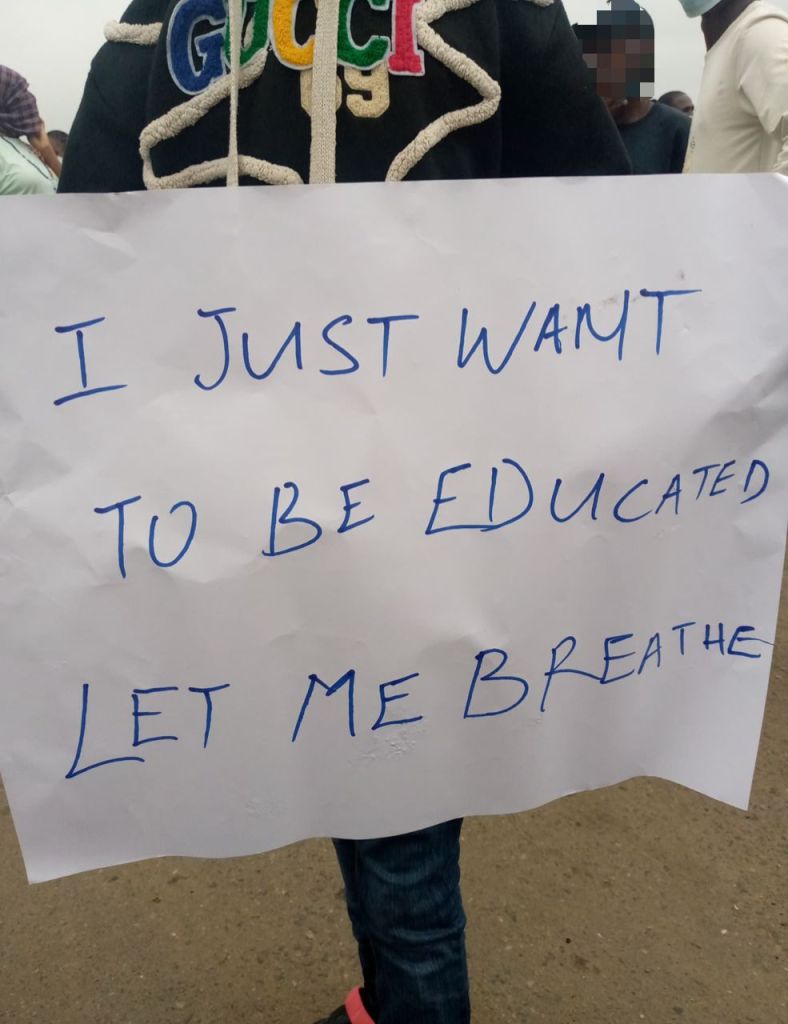 GUCCI
69
I JUST WANT
TO BE EDUCATED
LET ME BREATHE